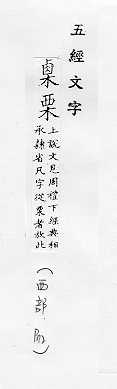 五經文字
㮚栗
上說文見周禮下經典相
承隸省凡字從栗者放此
（西部